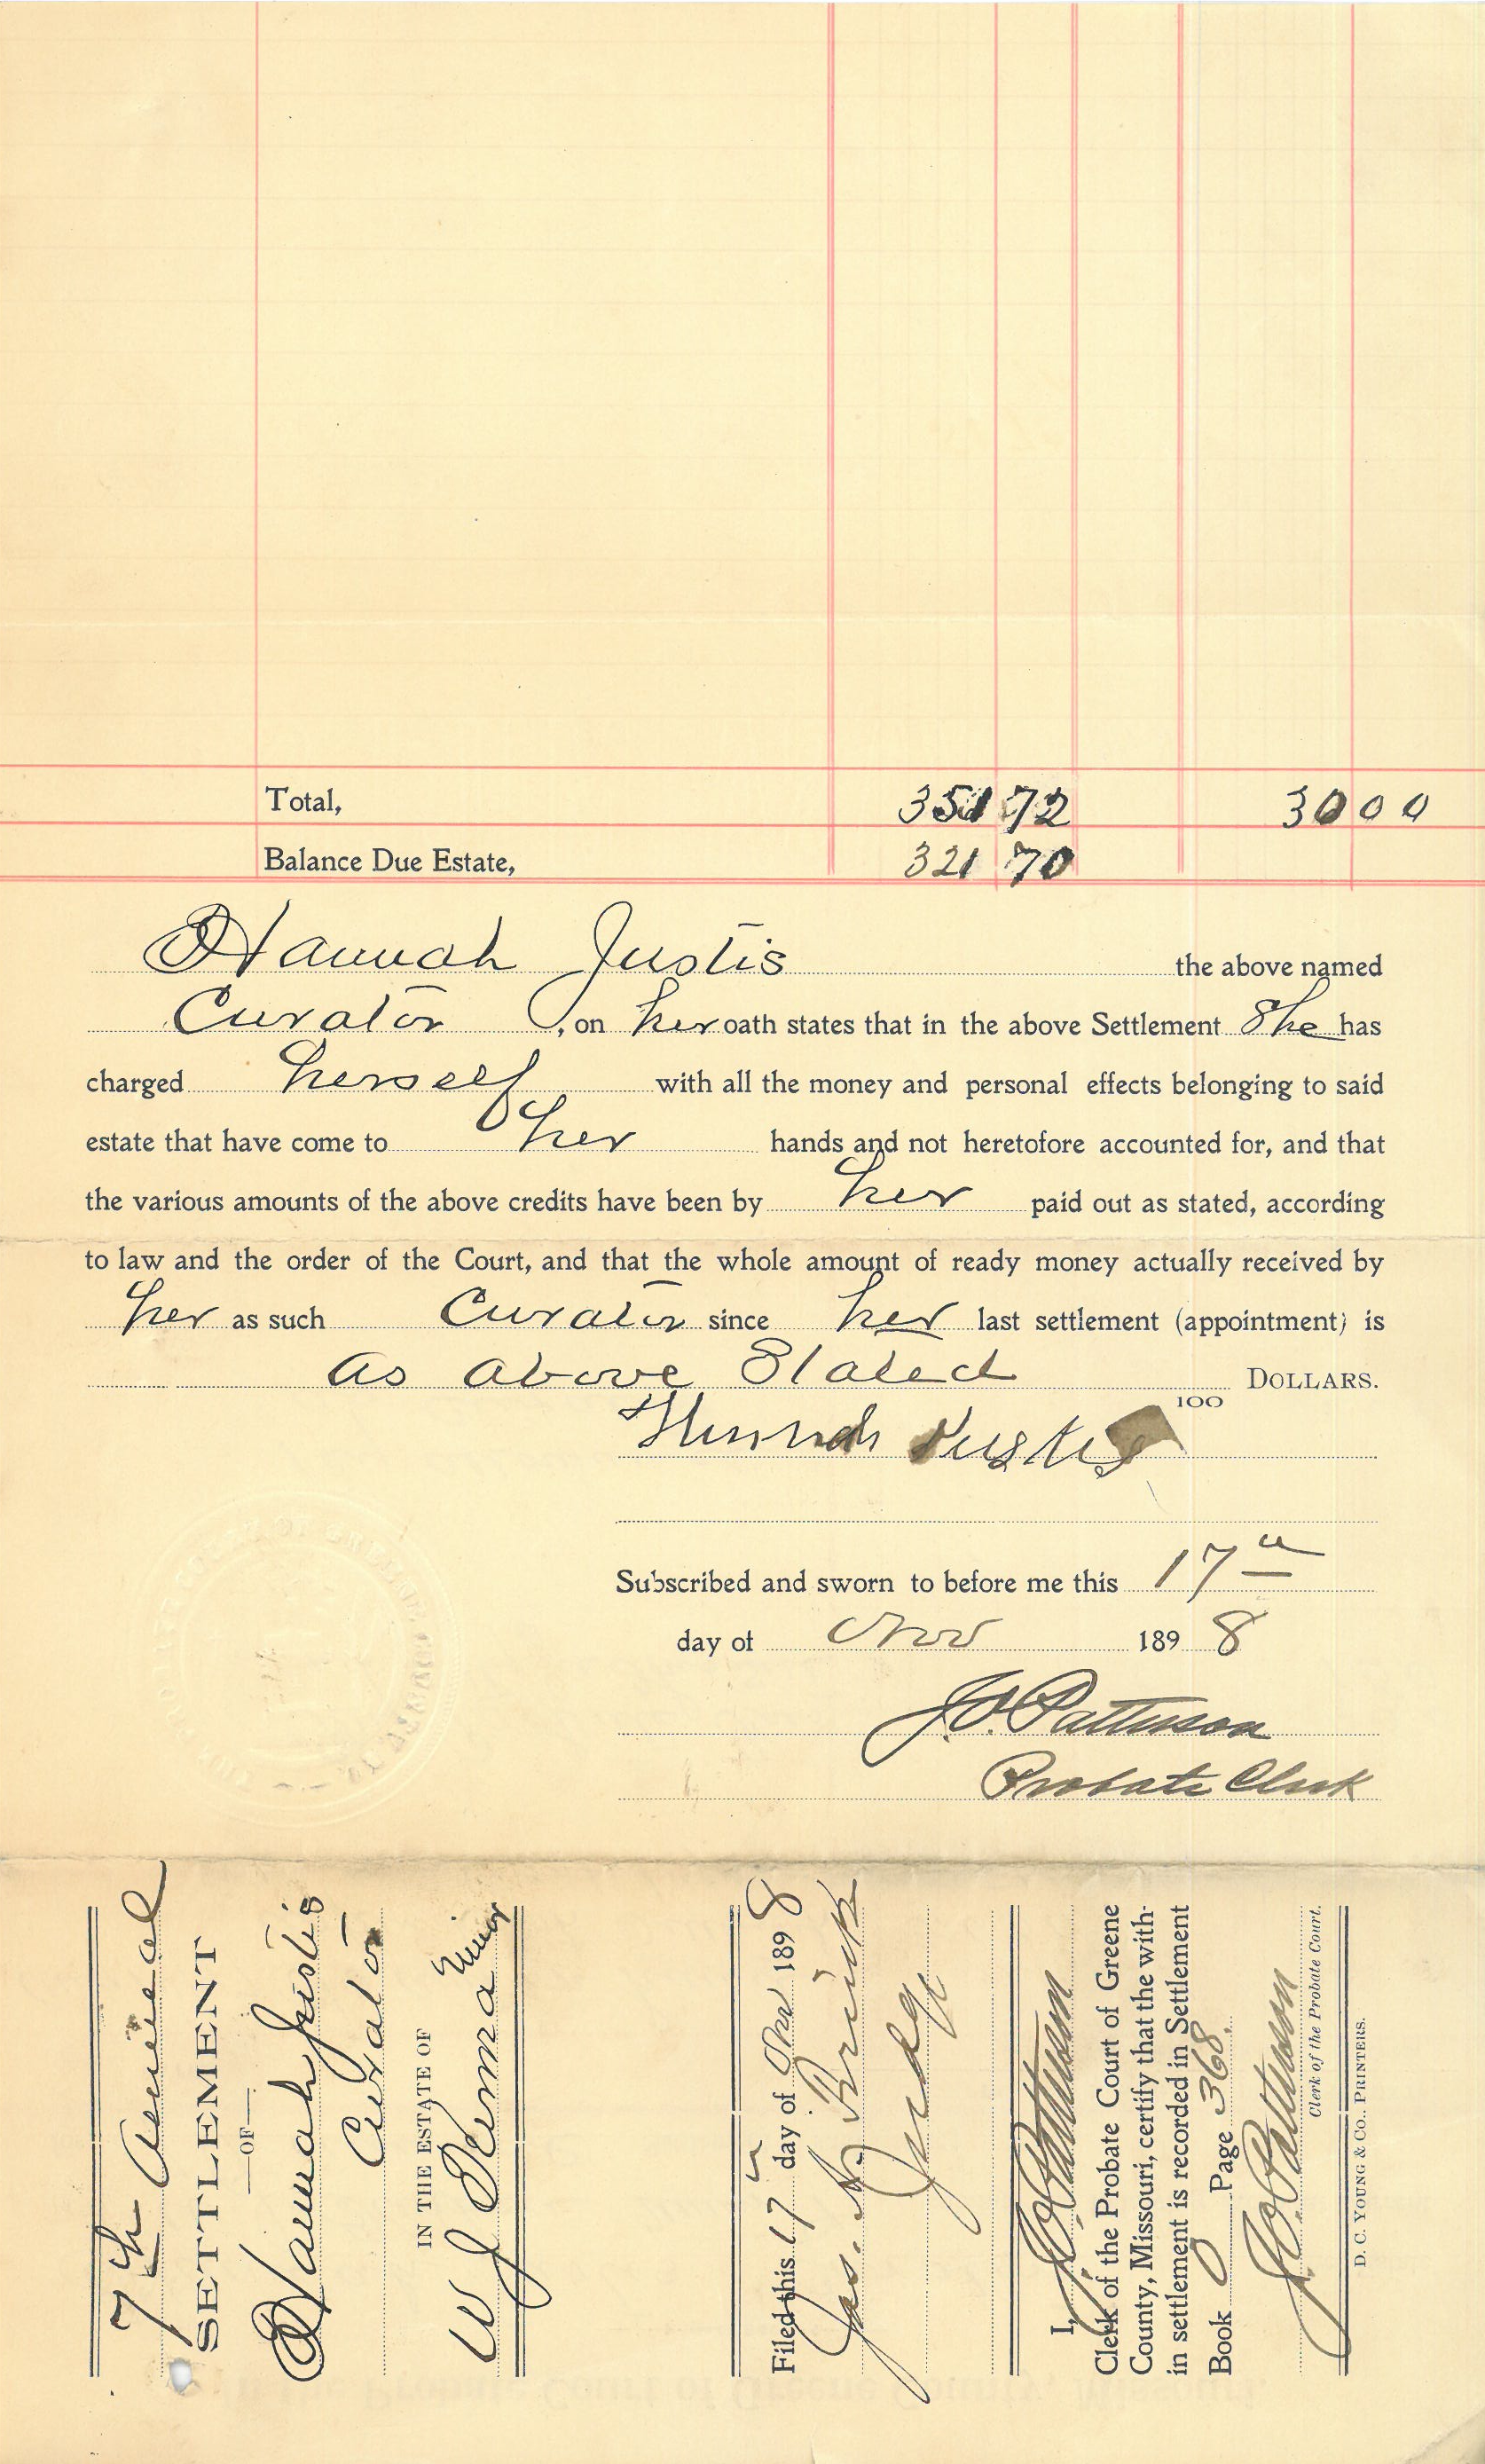 Total, 351 72 30 00
Balance Due Estate, 321 70
Hannah Justis the above named
Curator, on her oath states that in the above Settlement She has
charged herself with all the money and personal effects belonging to said
estate that have come to her hands and not heretofore accounted for, and that
the various amounts of the above credits have been by her paid out as stated, according
to law and the order of the Court, and that the whole amount of ready money actually received by
her as such Curator since her last settlement (appointment) is
as above Stated DOLLARS.
100
Hannah Justis
Subscribed and sworn to before me this 17th
day of Nov 1898
J.O. Patterson
Probate Clerk
7th Annual
SETTLEMENT
—OF—
Hannah Justis
Curator
IN THE ESTATE OF
W J Minor
Filed this 17 day of Nov 1898
Jas. Brink
Judge
I, J.O. Patterson
Clerk of the Probate Court of Greene
County, Missouri, certify that the with-
in settlement is recorded in Settlement
Book O Page 368.
J.O. Patterson
Clerk of the Probate Court.
D. C. YOUNG & CO., PRINTERS.